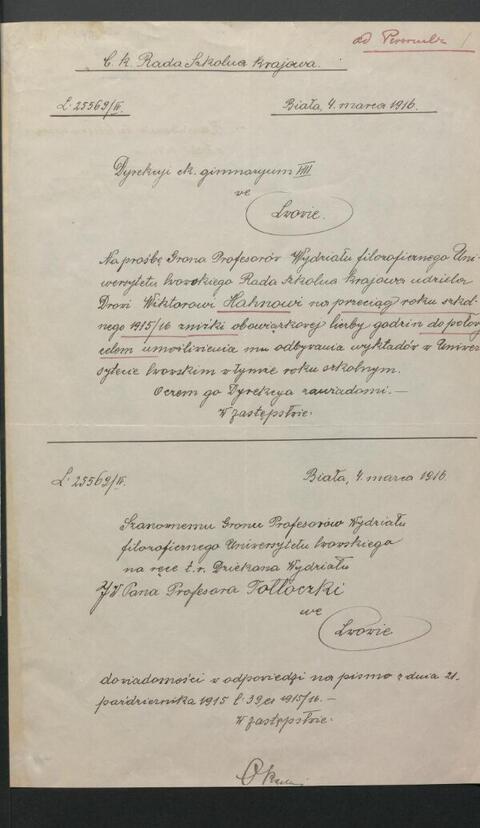 ad Personalia
C. k. Rada Szkolna krajowa.
L. 25569/IV. Biała, 4. marca 1916.
Dyrekcyi ck. gimnazyum VIII
we
Lwowie.
Na prośbę Grona Profesorów Wydziału filozoficznego Uni-
wersytetu lwowskiego Rada Szkolna krajowa udziela
Drowi Wiktorowi Hahnowi na przeciąg roku szkol-
nego 1915/16 zniżki obowiązkowej liczby godzin do połowy
celem umożliwienia mu odbywania wykładów w Uniwer-
sytecie lwowskim w tymże roku szkolnym.
O czem go Dyrekcya zawiadomi.—
W zastępstwie.
L. 25569/IV. Biała, 4. marca 1916.
Szanownemu Gronu Profesorów Wydziału
filozoficznego Uniwersytetu lwowskiego
na ręce t. r. Dziekana Wydziału
JW Pana Profesora Tołłoczki
we
Lwowie
do wiadomości w odpowiedzi na pismo z dnia 21.
października 1915 l. 39 ex 1915/16.—
W zastępstwie.